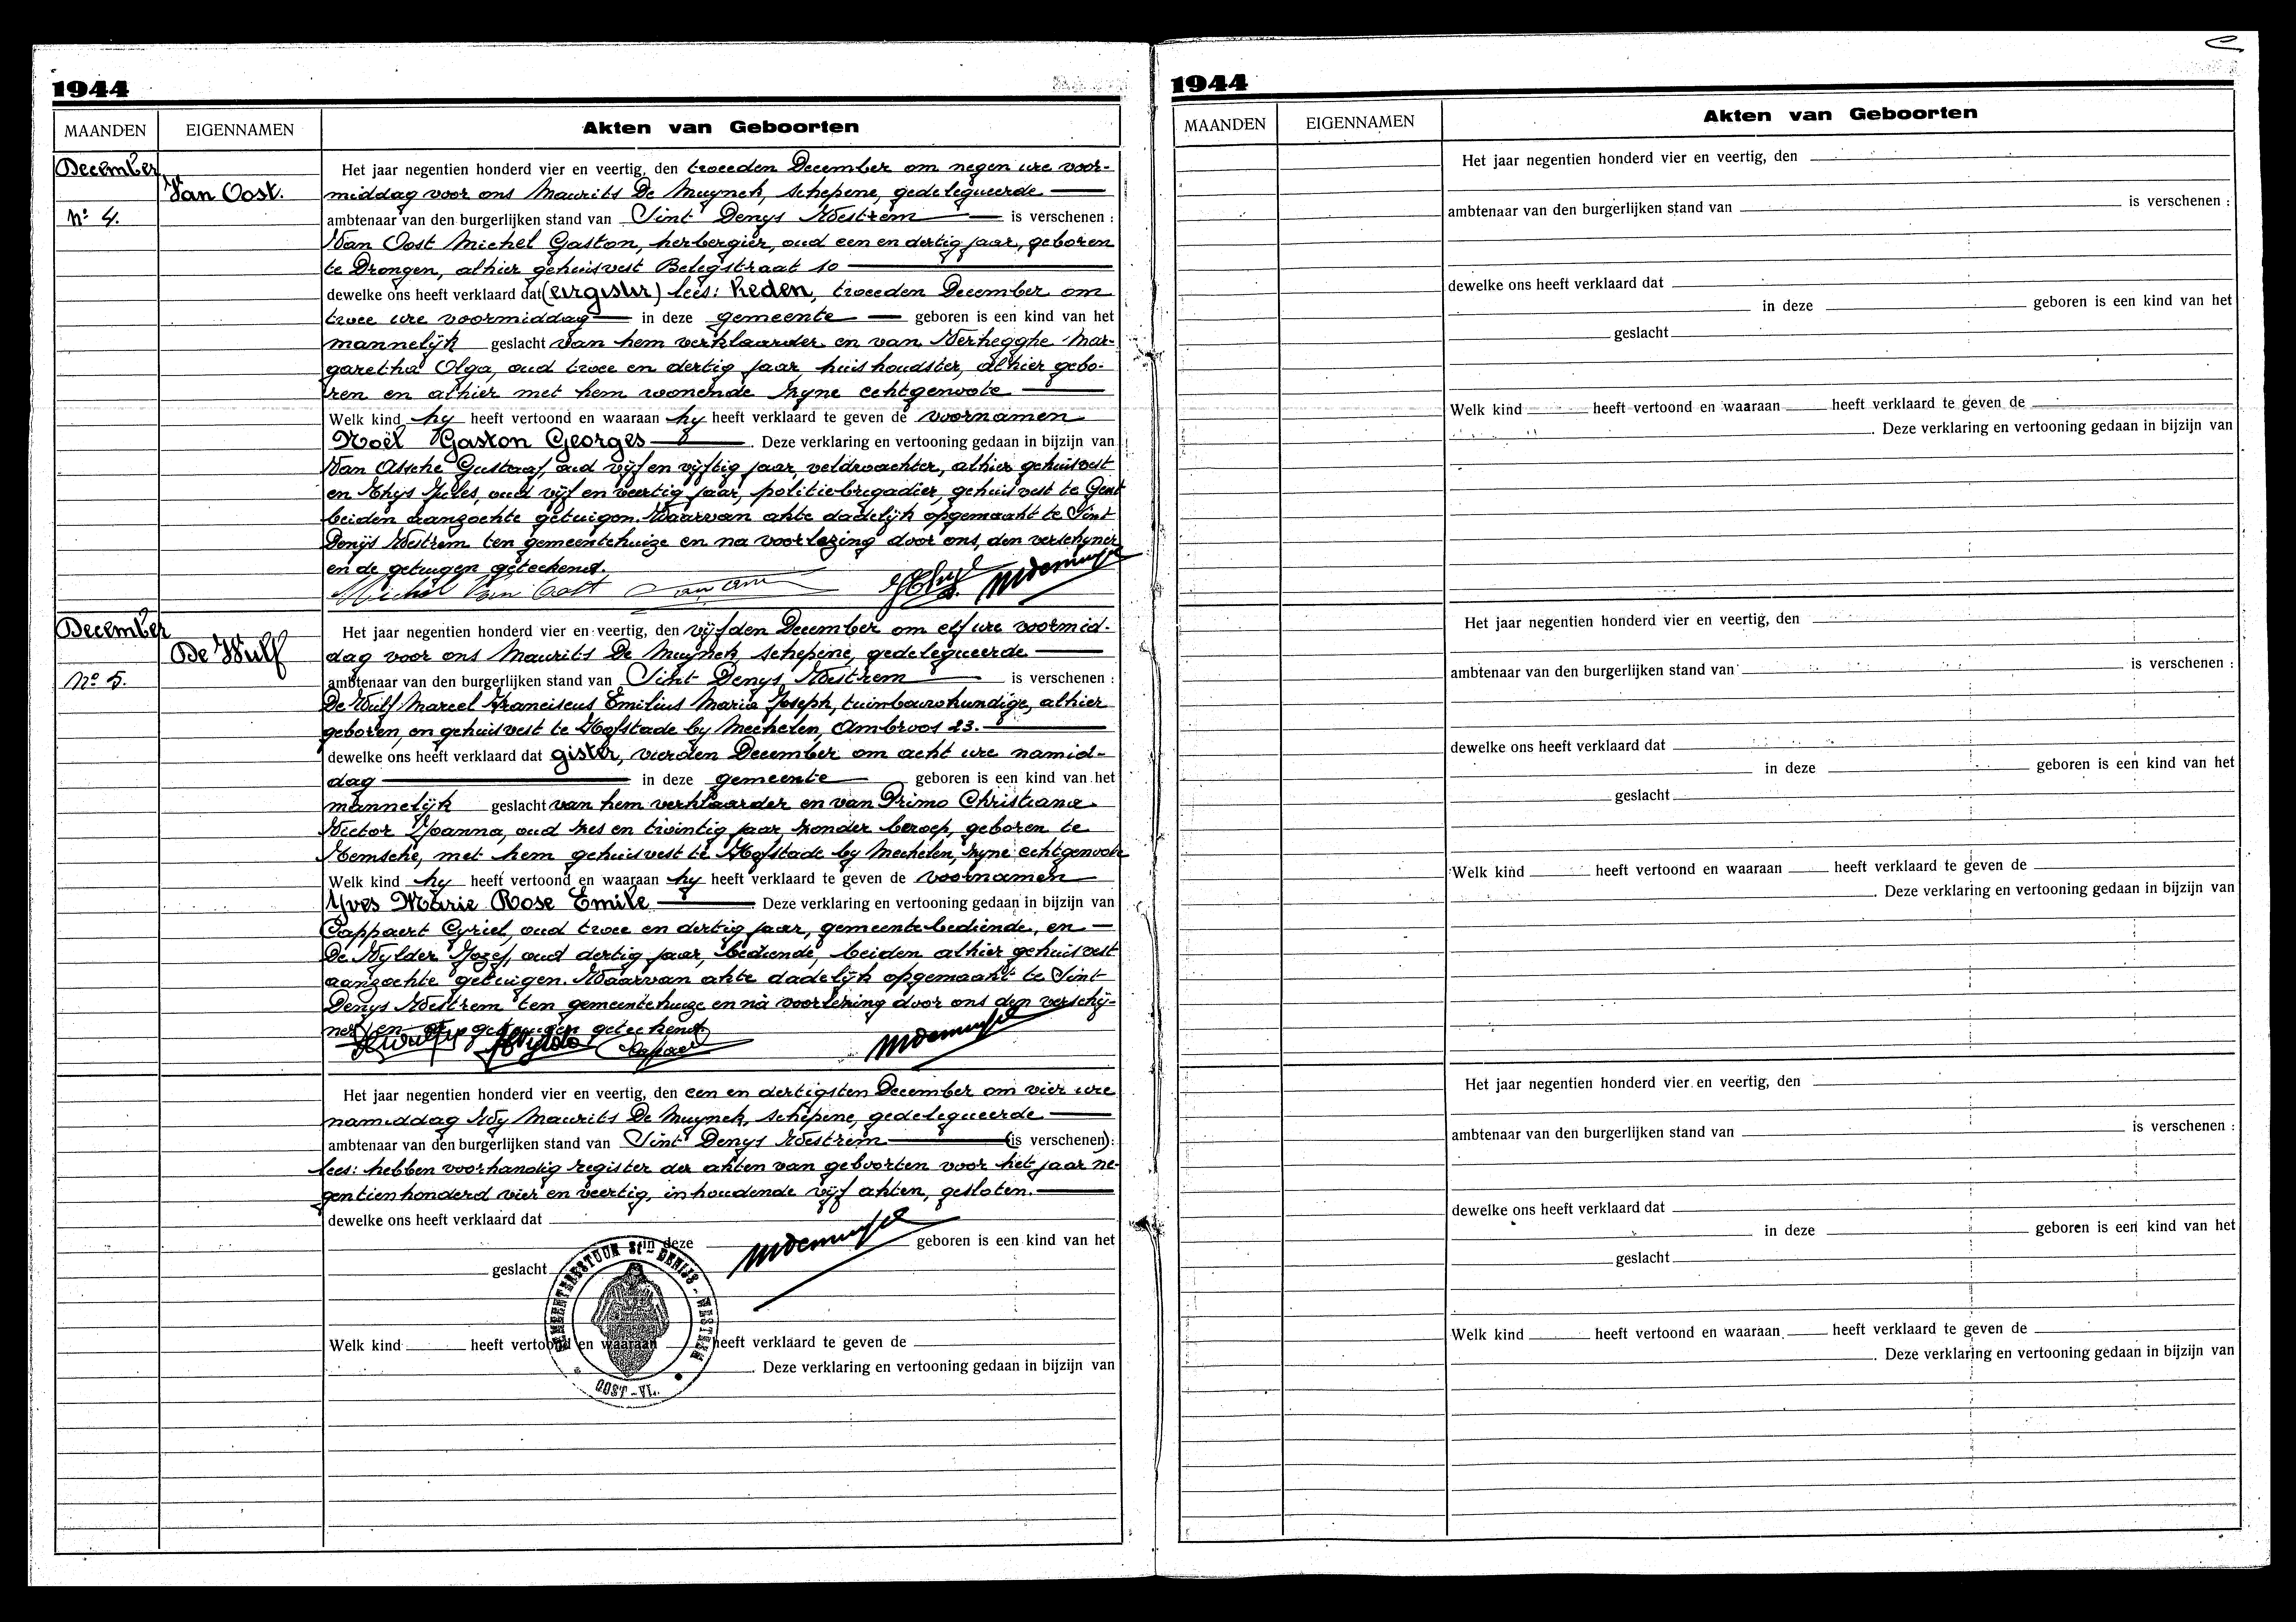 1944
MAANDEN EIGENNAMEN Akten van Geboorten
December Het jaar negentien honderd vier en veertig, den tweeden December om negen ure voor-
Van Oost. middag voor ons Maurits De Muynck, schepene, gedelegueerde
No 4. ambtenaar van den burgerlijken stand van Sint Denys Westrem is verschenen :
Van Oost Michel Gaston, herbergier, oud een en dertig jaar, geboren
te Drongen, alhier gehuisvest Belegstraat 10
dewelke ons heeft verklaard dat (eergister) lees: heden, tweeden December om
twee ure voormiddag in deze gemeente geboren is een kind van het
mannelijk geslacht van hem verklaarder en van Verhegghe Mar-
garetha Olga, oud twee en dertig jaar, huishoudster, alhier gebo-
ren en alhier met hem wonende zyne echtgenoote
Welk kind hy heeft vertoond en waaraan hy heeft verklaard te geven de voornamen
Noël Gaston Georges . Deze verklaring en vertooning gedaan in bijzijn van
Van Assche Gustaaf, oud vijf en vijftig jaar, veldwachter, alhier gehuisvest
en Thys Jules, oud vijf en veertig jaar, politiebrigadier, gehuisvest te Gent
beiden aanzochte getuigen. Waarvan akte dadelijk opgemaakt te Sint
Denijs Westrem ten gemeentehuize en na voorlezing door ons, den verschyner
en de getuigen geteekend.
Michel Van Oost
December Het jaar negentien honderd vier en veertig, den vijfden December om elf ure voormid-
De Wulf dag voor ons Maurits De Muynck schepene, gedelegueerde
No 5. ambtenaar van den burgerlijken stand van Sint Denys Westrem is verschenen :
De Wulf Marcel Franciscus Emilius Maria Joseph, tuinbouwkundige, alhier
geboren, en gehuisvest te Hofstade by Mechelen, Ambroos 23.
dewelke ons heeft verklaard dat gister, vierden December om acht ure namid-
dag in deze gemeente geboren is een kind van het
mannelijk geslacht van hem verklaarder en van Primo Christiana
Victor Joanna, oud zes en twintig jaar, zonder beroep, geboren te
Temsche, met hem gehuisvest te Hofstade by Mechelen, zyne echtgenoote
Welk kind hy heeft vertoond en waaraan hy heeft verklaard te geven de voornamen
Yves Marie Rose Emile Deze verklaring en vertooning gedaan in bijzijn van
Cappaert Cyriel, oud twee en dertig jaar, gemeentebediende, en
De Wylder Jozef, oud dertig jaar, bediende, beiden alhier gehuisvest
aanzochte getuigen. Waarvan akte dadelijk opgemaakt te Sint
Denys Westrem ten gemeentehuize en na voorlezing door ons den verschij-
ner en de getuigen geteekend
Het jaar negentien honderd vier en veertig, den een en dertigsten December om vier ure
namiddag Wy Maurits De Muynck, schepene, gedelegueerde
ambtenaar van den burgerlijken stand van Sint Denys Westrem (is verschenen):
lees: hebben voorhandig register der akten van geboorten voor het jaar ne-
gentienhonderd vier en veertig, inhoudende vijf akten, gesloten.
dewelke ons heeft verklaard dat
in deze geboren is een kind van het
geslacht
GEMEENTEBESTUUR St-DENIJS-WESTREM
OOST-VL.
Welk kind heeft vertoond en waaraan heeft verklaard te geven de
. Deze verklaring en vertooning gedaan in bijzijn van
1944
MAANDEN EIGENNAMEN Akten van Geboorten
Het jaar negentien honderd vier en veertig, den
ambtenaar van den burgerlijken stand van is verschenen :
dewelke ons heeft verklaard dat
in deze geboren is een kind van het
geslacht
Welk kind heeft vertoond en waaraan heeft verklaard te geven de
. Deze verklaring en vertooning gedaan in bijzijn van
Het jaar negentien honderd vier en veertig, den
ambtenaar van den burgerlijken stand van is verschenen :
dewelke ons heeft verklaard dat
in deze geboren is een kind van het
geslacht
Welk kind heeft vertoond en waaraan heeft verklaard te geven de
. Deze verklaring en vertooning gedaan in bijzijn van
Het jaar negentien honderd vier en veertig, den
ambtenaar van den burgerlijken stand van is verschenen :
dewelke ons heeft verklaard dat
in deze geboren is een kind van het
geslacht
Welk kind heeft vertoond en waaraan heeft verklaard te geven de
. Deze verklaring en vertooning gedaan in bijzijn van